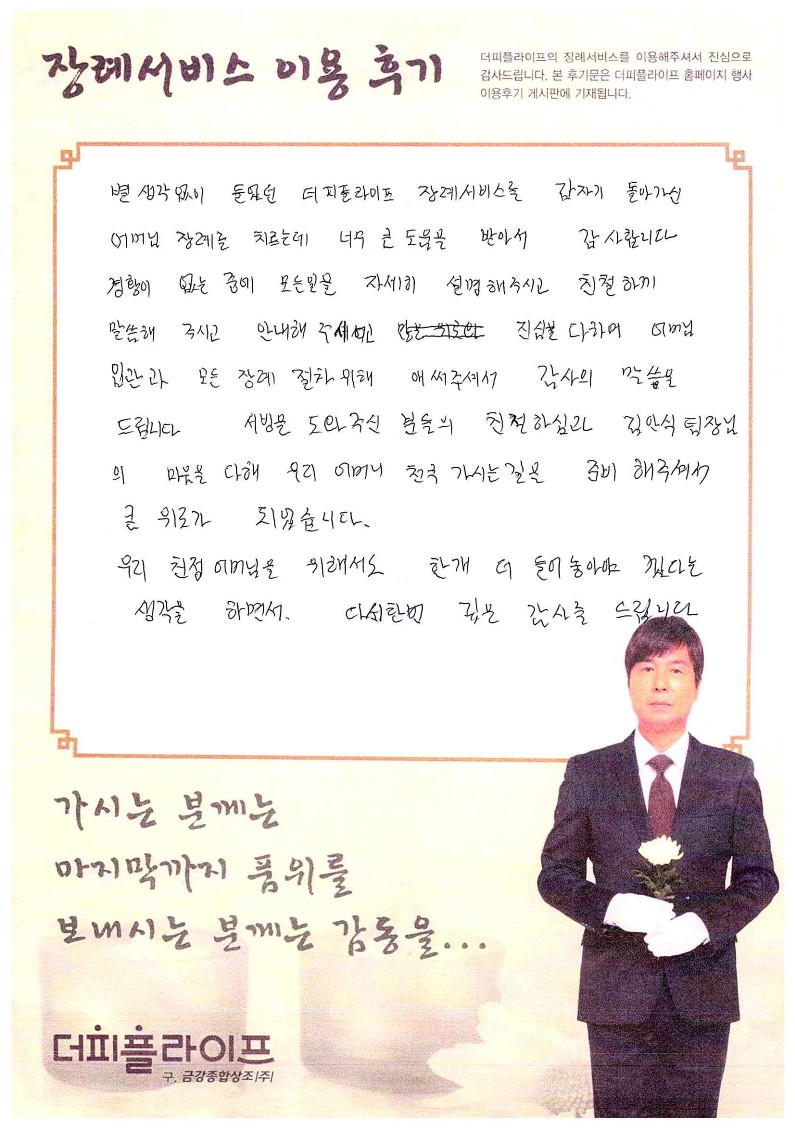 장례서비스 이용 후기
더피플라이프의 장례서비스를 이용해주셔서 진심으로
감사드립니다. 본 후기문은 더피플라이프 홈페이지 행사
이용후기 게시판에 기재됩니다.
별 생각없이 들었던 더피플라이프 장례서비스를 갑자기 돌아가신
어머님 장례를 치르는데 너무 큰 도움을 받아서 감사합니다
경황이 없는 중에 모든일을 자세히 설명해주시고 친절하게
말씀해 주시고 안내해 주셔서 진심을 다하며 어머님
입관과 모든 장례 절차위해 애써주셔서 감사의 말씀을
드립니다 서방문 도와주신 분들의 친절하심과 김안식팀장님
의 마음을 다해 우리 어머니 천국 가시는길을 준비해주셔서
큰 위로가 되었습니다.
우리 친정어머님을 위해서도 한개 더 들어놓아야 겠다는
생각을 하면서. 다시한번 깊은 감사를 드립니다
가시는 분께는
마지막까지 품위를
보내시는 분께는 감동을...
더피플라이프
구. 금강종합상조(주)